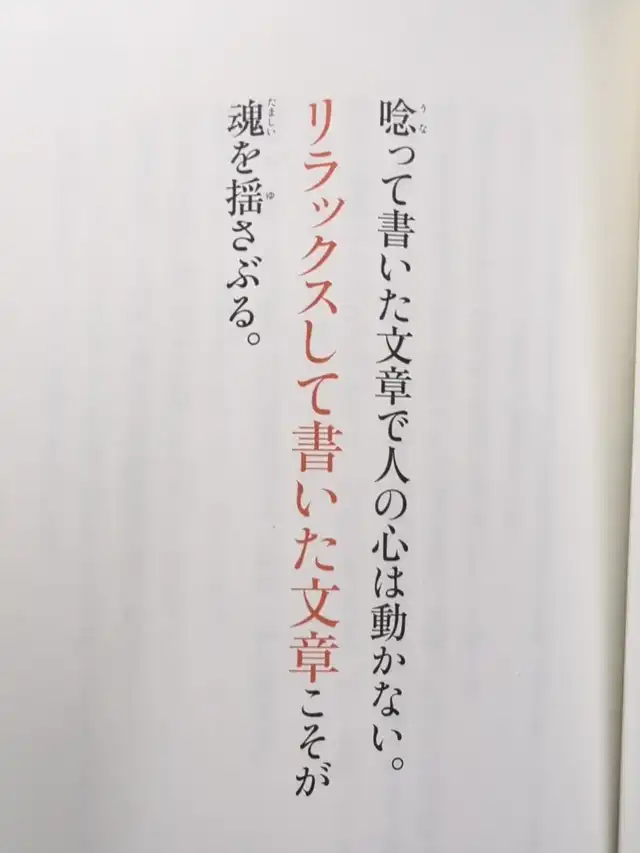 唸って書いた文章で人の心は動かない。
リラックスして書いた文章こそが
魂を揺さぶる。